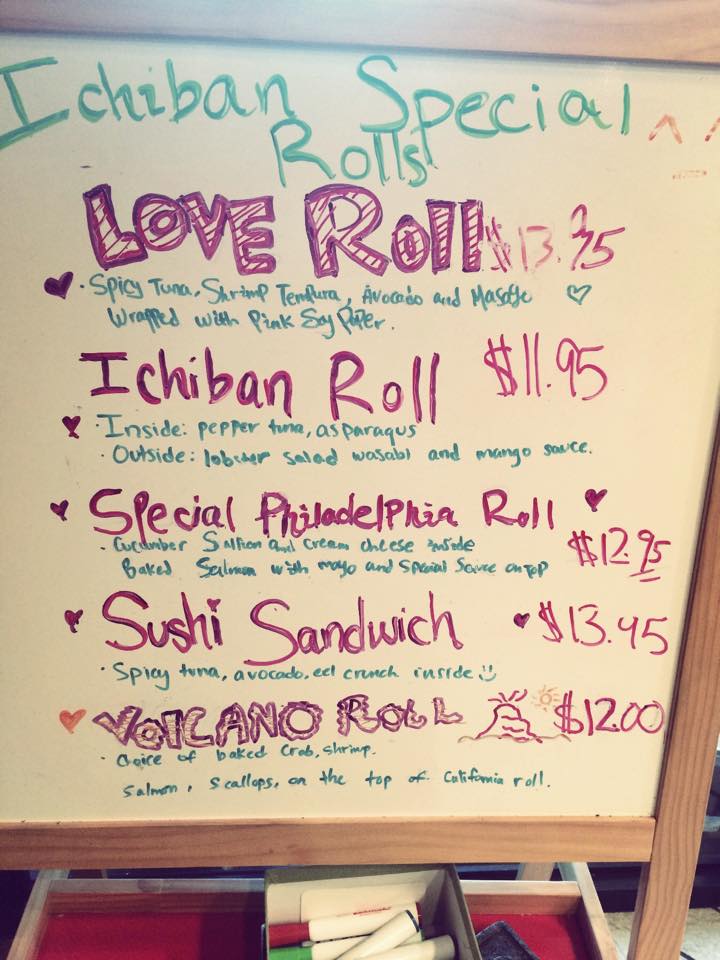 Ichiban Special
Rolls
LOVE Roll $13.95
· Spicy Tuna, Shrimp Tempura, Avocado and Masage
Wrapped with Pink Soy Paper.
Ichiban Roll $11.95
· Inside: pepper tuna, asparagus
· Outside: lobster salad wasabi and mango sauce.
Special Philadelphia Roll
$12.95
· Cucumber Sallion and cream cheese inside
Baked Salmon with mayo and special sauce on top
Sushi Sandwich $13.45
· Spicy tuna, avocado, eel crunch inside
VOLCANO ROLL $12.00
· Choice of baked crab, shrimp.
salmon, scallops, on the top of California roll.